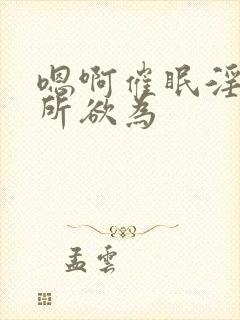 嗯啊催眠淫
所欲為
孟雲